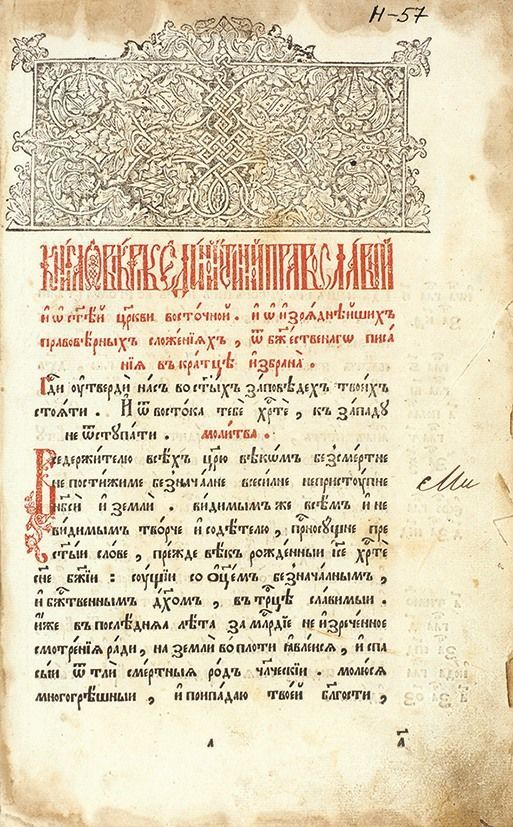 Н-57
КНИГА Ѡ ВѢРѢ Є҆ДИНОЙ И҆СТИННОЙ ПРАВОСЛАВНОЙ
и҆ ѡ҆ ст҃ѣй цр҃кви восточной . и҆ ѡ҆ и҆зрѧднѣйшихъ
правовѣрныхъ сложенїѧхъ , ѿ бж҃ественагѡ писа
нїѧ въ кратцѣ и҆збрана̀ .
Гдⷭ҇и ᲂу҆тверди на́съ во ст҃ыхъ за́повѣдехъ твои́хъ
стоѧ́ти . И҆ ѿ восто́ка тебѐ хрⷭ҇тѐ , къ за́паду
не ѿстꙋпа́ти . моли́тва .
Вседержи́телю всѣ́хъ цр҃ю вѣкѡ́мъ безсме́ртне
не постижи́ме безнача́лне всеси́лне непристꙋ́пне
нбⷭ҇сѝ и҆ землѝ . ви́димымъ же всѣ́мъ и҆ не
ви́димымъ тво́рче и҆ содѣ́телю , прⷭ҇носꙋ́щне пре
ст҃ы́и сло́ве , пре́жде вѣ́къ рожде́нныи і҆с҃е хрⷭ҇тѐ
сн҃е бж҃їи : сꙋ́щїи со ѻ҆ц҃е́мъ безнача́лнымъ ,
и҆ бжⷭ҇твеннымъ дх҃омъ , въ трⷪ҇цѣ сла́вимыи .
и҆́же въ послѣ́днѧѧ лѣ́та за млⷭ҇рдїе не и҆зрече́нное
смотре́нїѧ ра́ди , на землѝ во пло́ти ꙗ҆вле́исѧ , и҆ спа
сы́и ѿ тлѝ сме́ртныѧ ро́дъ чл҃ческїи . молю́сѧ
многогрѣ́шныи , и҆ припа́даю твое́й бл҃гости ,
а҃